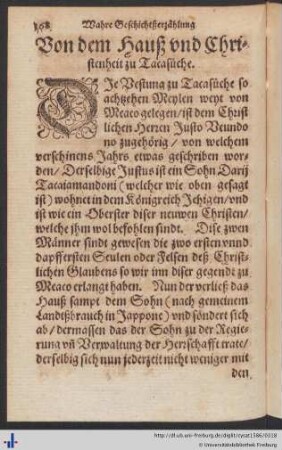 168 Wahre Geschichtserzählung
Von dem Hauß vnd Chri-
stenheit zu Tacasüche.
DIe Vestung zu Tacasüche so
achtzehen Meylen weyt von
Meaco gelegen / ist dem Christ
lichen Herren Justo Veundo
no zugehörig / von welchem
verschinens Jahrs etwas geschriben wor-
den / Derselbige Justus ist ein Sohn Darij
Tacaiamandoni (welcher wie oben gesagt
ist) wohnet in dem Königreich Jehigen / vnd
ist wie ein Oberster diser neuwen Christen /
welche ihm wol befohlen sindt. Dise zwen
Männer sindt gewesen die zwo ersten vnnd
dapffersten Seulen oder Felsen deß Christ-
lichen Glaubens so wir inn diser gegendt zu
Meaco erlangt haben. Nun der verließ das
Hauß sampt dem Sohn (nach gemeinem
Landtßbrauch in Jappone) vnd söndert sich
ab / dermassen das der Sohn zu der Regie-
rung vñ Verwaltung der Herrschafft trate /
derselbig sich nun jederzeit nicht weniger mit
den
http://dl.ub.uni-freiburg.de/diglit/cysat1586/0318
© Universitätsbibliothek Freiburg